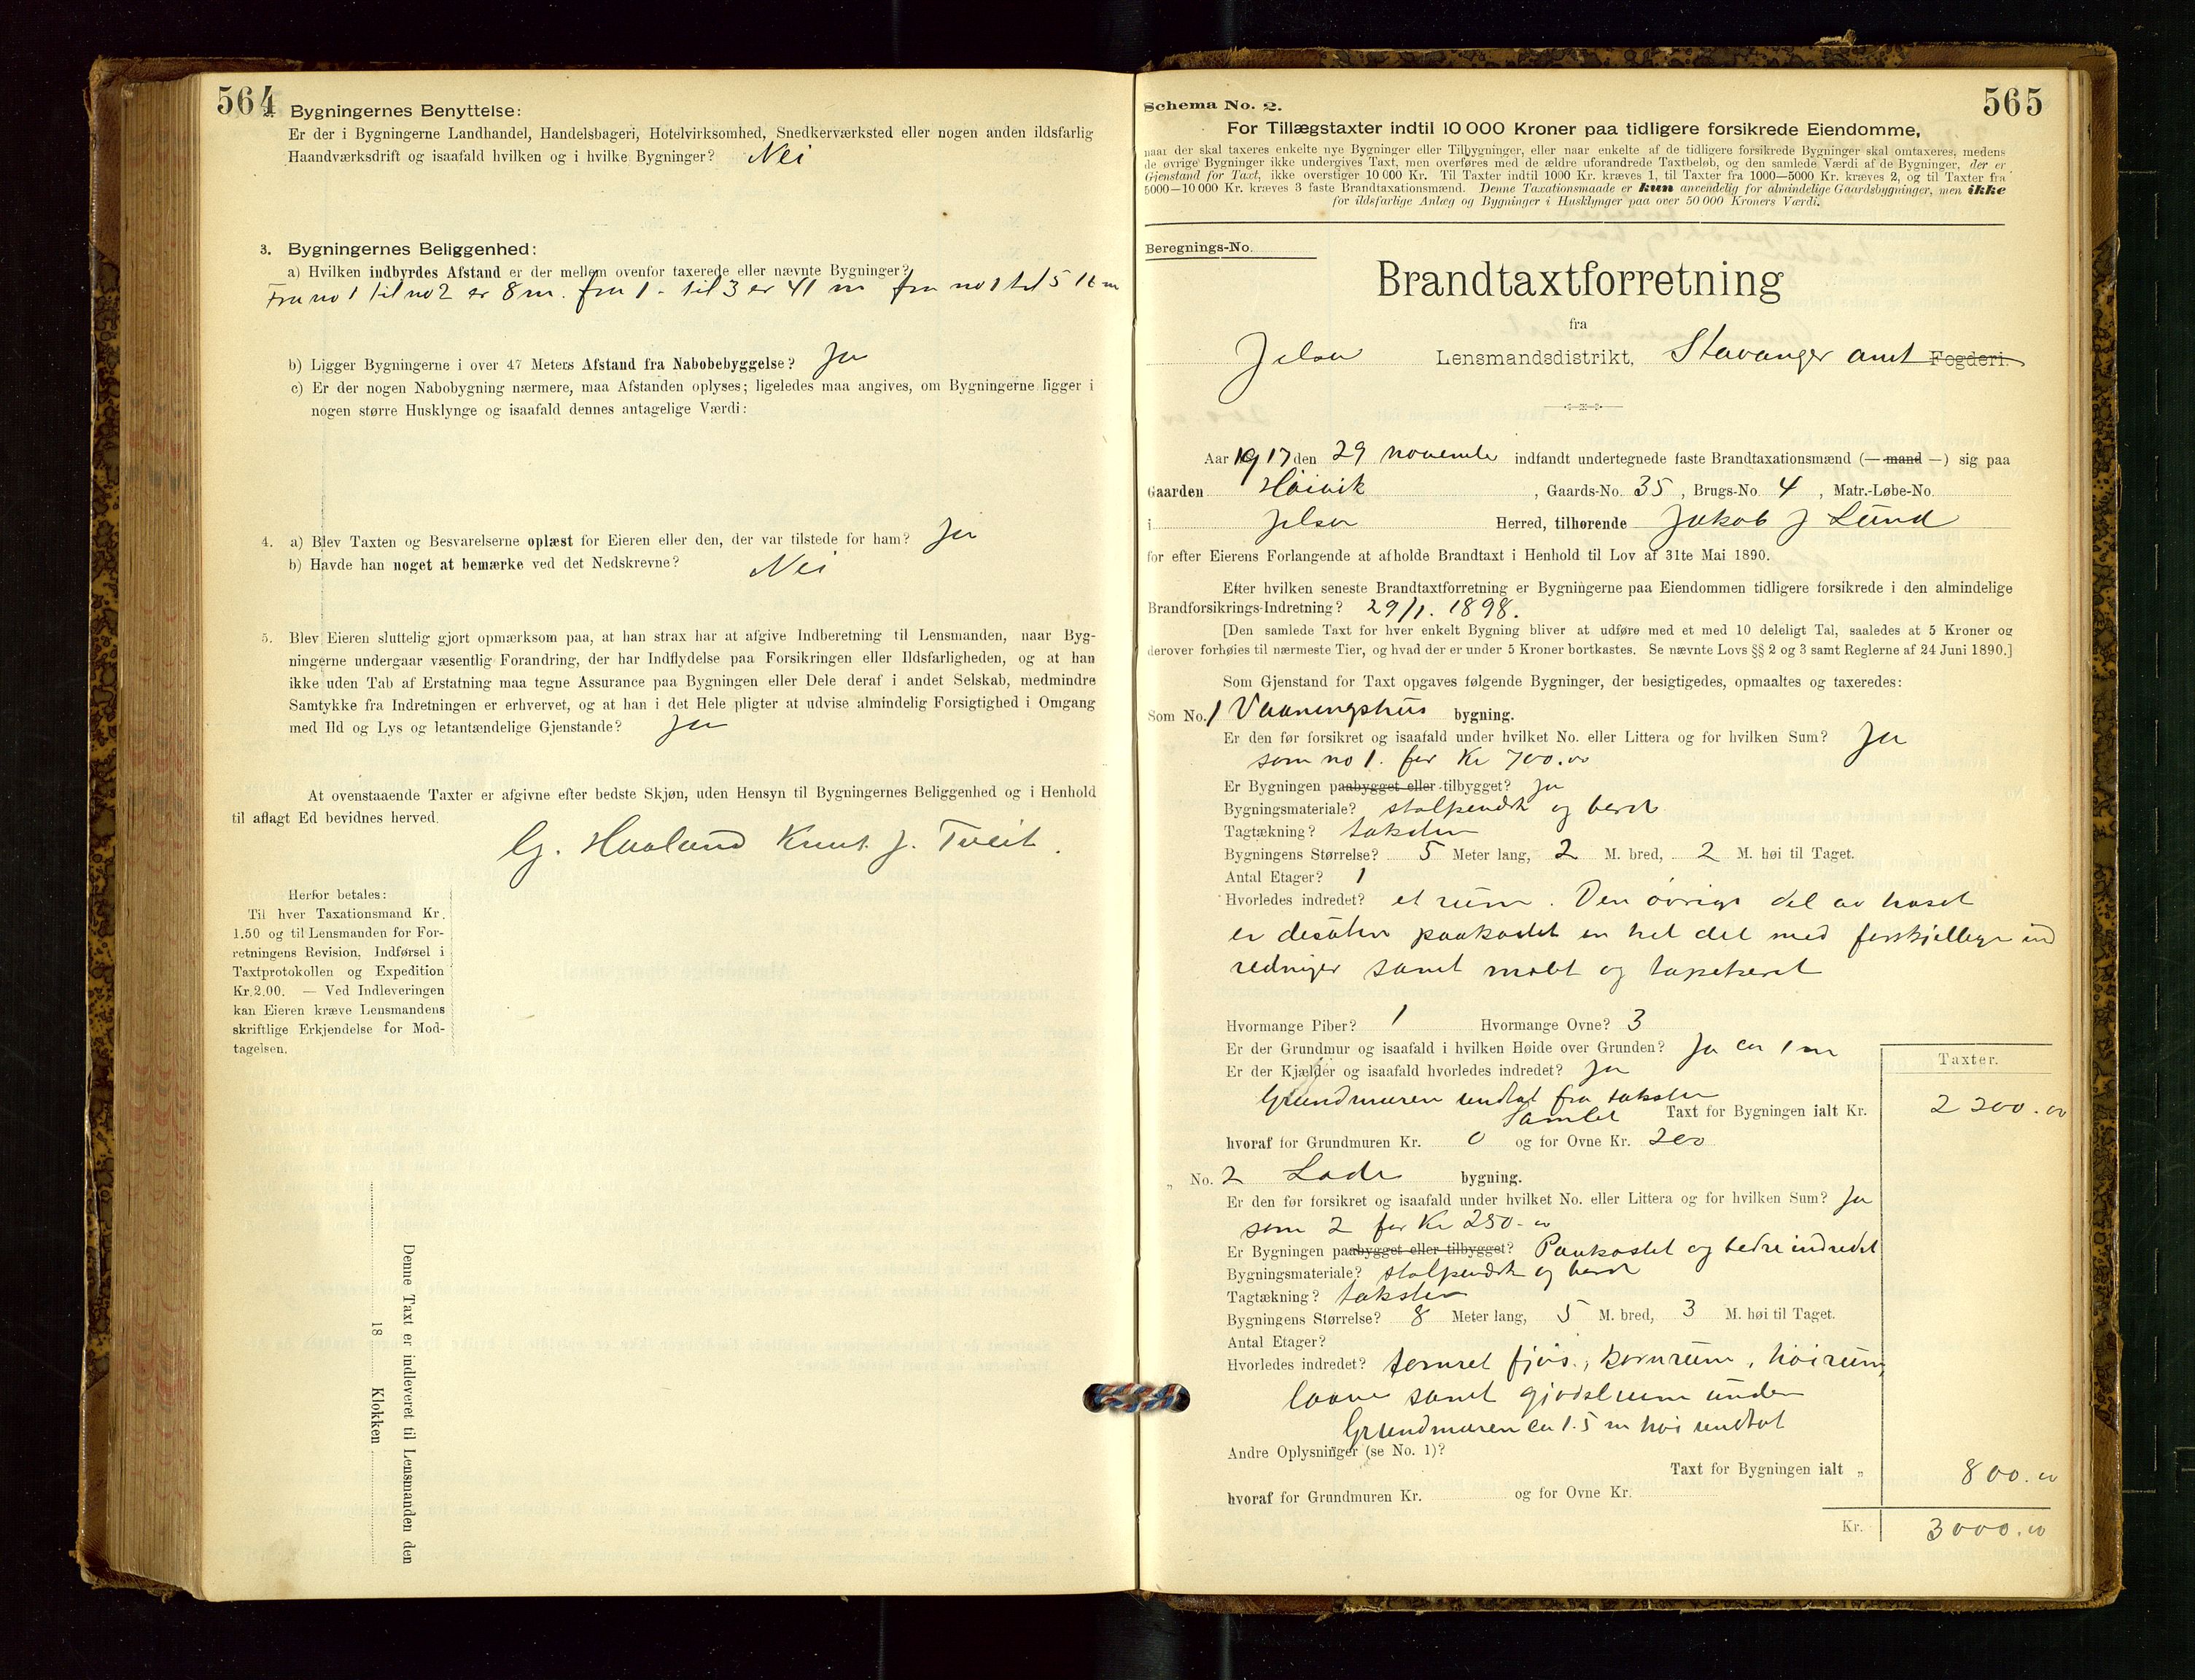 564
Bygningernes Benyttelse:
Er der i Bygningerne Landhandel, Handelsbageri, Hotelvirksomhed, Snedkerværksted eller nogen anden ildsfarlig
Haandværksdrift og isaafald hvilken og i hvilke Bygninger? Nei
3. Bygningernes Beliggenhed:
a) Hvilken indbyrdes Afstand er der mellem ovenfor taxerede eller nævnte Bygninger?
Fra no 1 til no 2 er 8 m. fra 1 - til 3 er 41 m fra no 1 til 5 16 m
b) Ligger Bygningerne i over 47 Meters Afstand fra Nabobebyggelse? Ja
c) Er der nogen Nabobygning nærmere, maa Afstanden oplyses; ligeledes maa angives, om Bygningerne ligger i
nogen større Husklynge og isaafald dennes antagelige Værdi:
4. a) Blev Taxten og Besvarelserne oplæst for Eieren eller den, der var tilstede for ham? Ja
b) Havde han noget at bemærke ved det Nedskrevne? Nei
5. Blev Eieren sluttelig gjort opmærksom paa, at han strax har at afgive Indberetning til Lensmanden, naar Byg-
ningerne undergaar væsentlig Forandring, der har Indflydelse paa Forsikringen eller Ildsfarligheden, og at han
ikke uden Tab af Erstatning maa tegne Assurance paa Bygningen eller Dele deraf i andet Selskab, medmindre
Samtykke fra Indretningen er erhvervet, og at han i det Hele pligter at udvise almindelig Forsigtighed i Omgang
med Ild og Lys og letantændelige Gjenstande? Ja
At ovenstaaende Taxter er afgivne efter bedste Skjøn, uden Hensyn til Bygningernes Beliggenhed og i Henhold
til aflagt Ed bevidnes herved.
G. Haaland Knut J. Tveit.
Herfor betales:
Til hver Taxationsmand Kr.
1.50 og til Lensmanden for For-
retningens Revision, Indførsel i
Taxtprotokollen og Expedition
Kr. 2.00. — Ved Indleveringen
kan Eieren kræve Lensmandens
skriftlige Erkjendelse for Mod-
tagelsen.
Denne Taxt er indleveret til Lensmanden den
18 Klokken
565
Schema No. 2.
For Tillægstaxter indtil 10 000 Kroner paa tidligere forsikrede Eiendomme,
naar der skal taxeres enkelte nye Bygninger eller Tilbygninger, eller naar enkelte af de tidligere forsikrede Bygninger skal omtaxeres, medens
de øvrige Bygninger ikke undergives Taxt, men overføres med de ældre uforandrede Taxtbeløb, og den samlede Værdi af de Bygninger, der er
Gjenstand for Taxt, ikke overstiger 10 000 Kr. Til Taxter indtil 1000 Kr. kræves 1, til Taxter fra 1000—5000 Kr. kræves 2, og til Taxter fra
5000—10 000 Kr. kræves 3 faste Brandtaxationsmænd. Denne Taxationsmaade er kun anvendelig for almindelige Gaardsbygninger, men ikke
for ildsfarlige Anlæg og Bygninger i Husklynger paa over 50 000 Kroners Værdi.
Beregnings-No.
Brandtaxtforretning
fra
Jelsa Lensmandsdistrikt, Stavanger amt Fogderi.
Aar 1917 den 29 november indfandt undertegnede faste Brandtaxationsmænd (— mand —) sig paa
Gaarden Høivik, Gaards-No. 35, Brugs-No. 4, Matr.-Løbe-No.
i Jelsa Herred, tilhørende Jakob J Lund
for efter Eierens Forlangende at afholde Brandtaxt i Henhold til Lov af 31te Mai 1890.
Efter hvilken seneste Brandtaxtforretning er Bygningerne paa Eiendommen tidligere forsikrede i den almindelige
Brandforsikrings-Indretning? 29/1. 1898.
[Den samlede Taxt for hver enkelt Bygning bliver at udføre med et med 10 deleligt Tal, saaledes at 5 Kroner og
derover forhøies til nærmeste Tier, og hvad der er under 5 Kroner bortkastes. Se nævnte Lovs §§ 2 og 3 samt Reglerne af 24 Juni 1890.]
Som Gjenstand for Taxt opgaves følgende Bygninger, der besigtigedes, opmaaltes og taxeredes:
Som No. 1 Vaaningshus bygning.
Er den før forsikret og isaafald under hvilket No. eller Littera og for hvilken Sum? Ja
som no 1. for Kr 700.00
Er Bygningen paabygget eller tilbygget? Ja
Bygningsmateriale? stolpeværk og bord
Tagtækning? taksten
Bygningens Størrelse? 5 Meter lang, 2 M. bred, 2 M. høi til Taget.
Antal Etager? 1
Hvorledes indredet? et rum. Den øvrige del av huset
er desuten paakostet en hel del med forskjellige ind
redniger samt malt og tapetseret
Hvormange Piber? 1 Hvormange Ovne? 3
Er der Grundmur og isaafald i hvilken Høide over Grunden? Ja ca 1 m
Er der Kjælder og isaafald hvorledes indredet? Ja
Grundmuren undtat fra taksten
Taxter.
Samlet Taxt for Bygningen ialt Kr. 2200.00
hvoraf for Grundmuren Kr. 0 og for Ovne Kr. 200
„ No. 2 Lade bygning.
Er den før forsikret og isaafald under hvilket No. eller Littera og for hvilken Sum? Ja
som 2 for Kr 250-00
Er Bygningen paabygget eller tilbygget? Paakostet og bedre indredet
Bygningsmateriale? stolpeværk og bord
Tagtækning? taksten
Bygningens Størrelse? 8 Meter lang, 5 M. bred, 3 M. høi til Taget.
Antal Etager?
Hvorledes indredet? tømret fjøs, kornrum, høirum,
laave samt gjødselrum under
Grundmuren ca 1.5 m høi undtat
Andre Oplysninger (se No. 1)?
Taxt for Bygningen ialt „ 800.00
hvoraf for Grundmuren Kr. og for Ovne Kr.
Kr. 3000.00